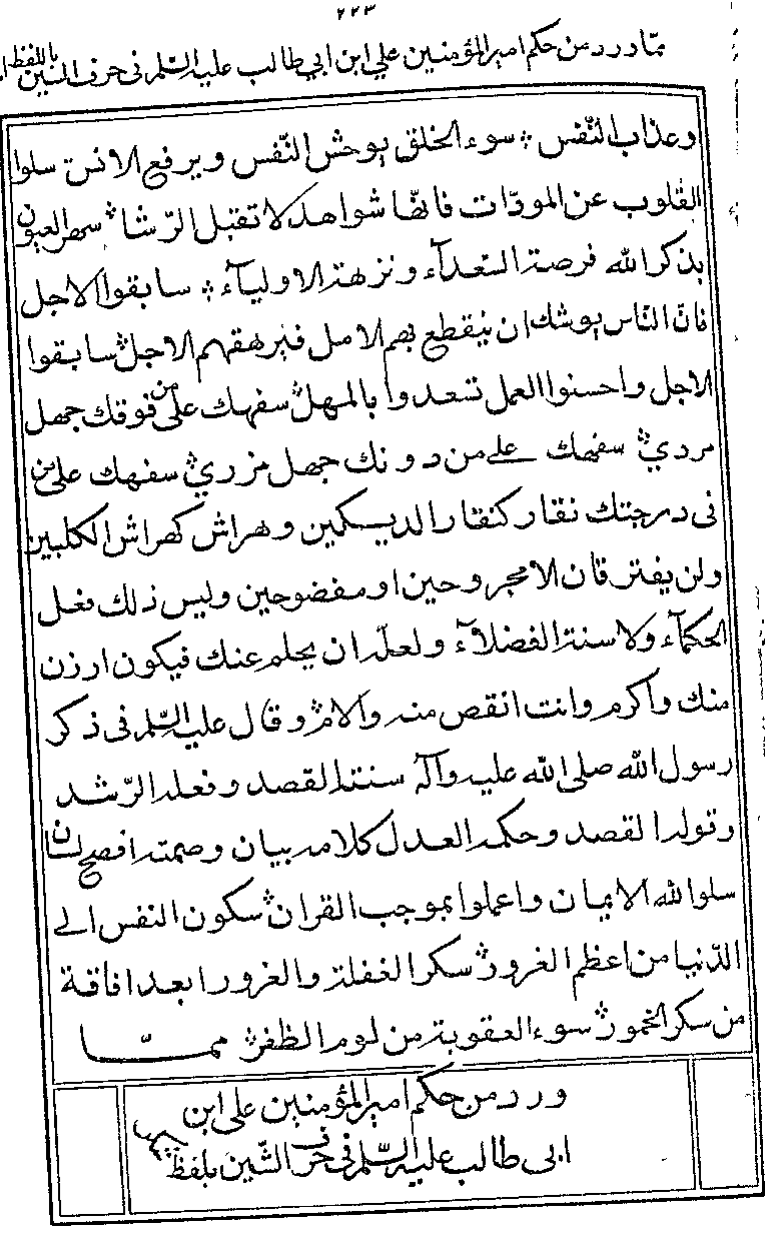 ٢٢٣
ممّا ورد من حكم امير المؤمنين علي ابن ابي طالب عليه السّلم في حرف السّين باللفظ
وعذاب النّفس ؞ سوء الخلق يوحش النّفس ويرفع الانس سلوا
القلوب عن المودّات فانها شواهد لا تقبل الرّشا ؞ سهر العيون
بذكر الله فرصة السّعدآء ونزهة الاوليآء ؞ سابقوا الاجل
فانّ النّاس يوشك ان ينقطع بهم الامل فيرهقهم الاجل ؞ سابقوا
الاجل واحسنوا العمل تسعدوا بالمهل ؞ سفهك على من فوقك جهل
مردي ؞ سفهك على من دونك جهل مزري ؞ سفهك على من
في درجتك نقار كنقار الديكين وهراش كهراش الكلبين
ولن يفترقان الا مجروحين او مفضوحين وليس ذلك فعل
الحكمآء ولا سنة الفضلآء ولعلّه ان يحلم عنك فيكون ارزن
منك واكرم وانت انقص منه والام ؞ وقال عليه السّلم في ذكر
رسول الله صلى الله عليه وآله سنته القصد وفعله الرّشد
وقوله القصد وحكمه العدل كلامه بيان وصمته افصح لسان
سلوا لله الايمان واعملوا بموجب القران ؞ سكون النفس الى
الدّنيا من اعظم الغرور ؞ سكر الغفلة والغرور ابعد افاقة
من سكر الخمور ؞ سوء العقوبة من لوم الظفر ؞ ممّا
ورد من حكم امير المؤمنين على ابن
ابي طالب عليه السّلم في حرف الشّين بلفظ